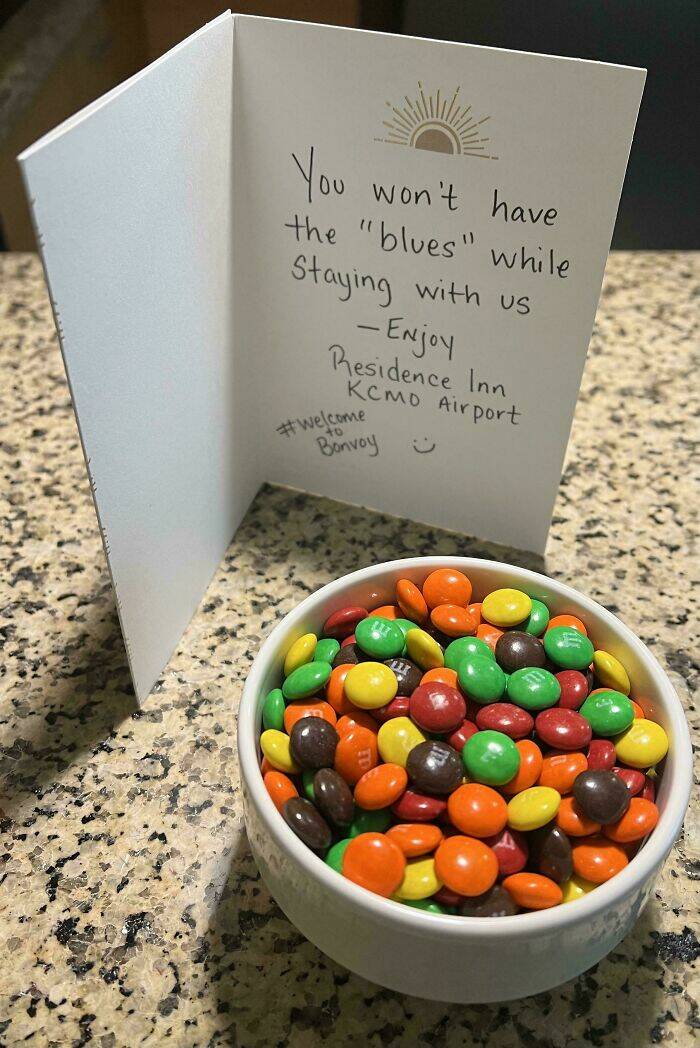 You won't have
the "blues" while
Staying with us
— Enjoy
Residence Inn
KCMO Airport
#welcome
to
Bonvoy
m
m
m
m
m